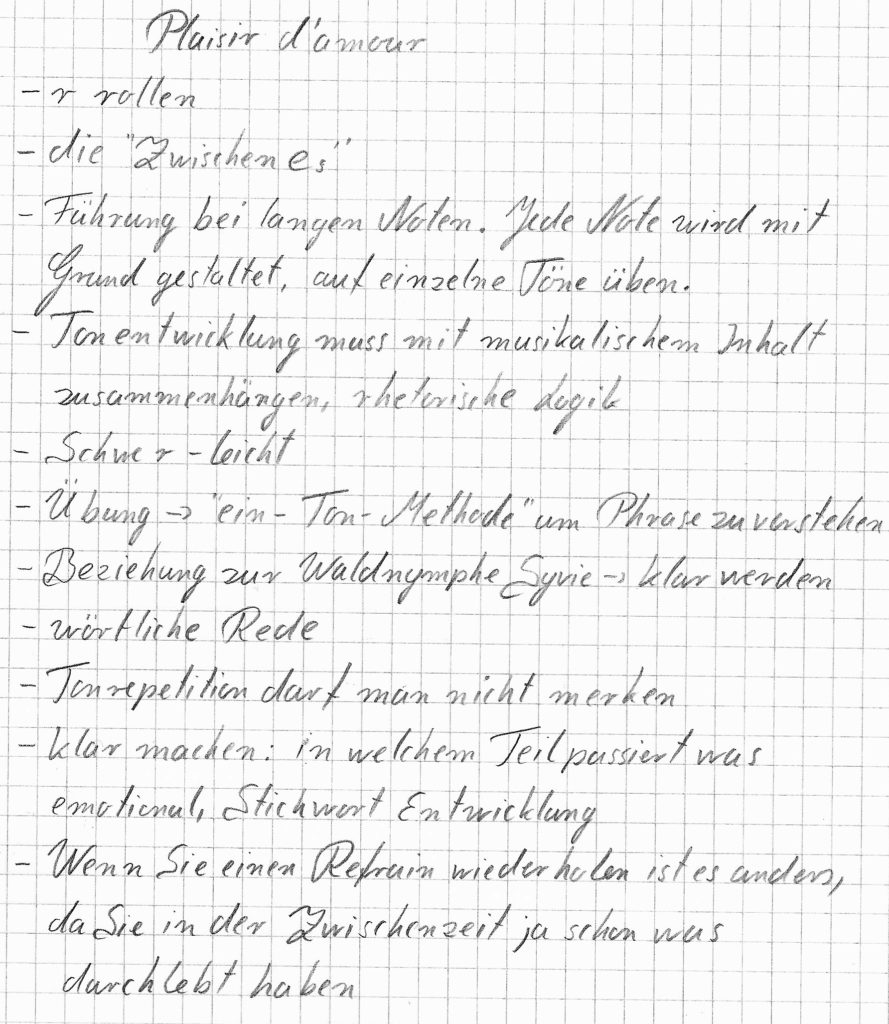 Plaisir d'amour
- r rollen
- die "Zwischen es"
- Führung bei langen Noten. Jede Note wird mit
Grund gestaltet, auf einzelne Töne üben.
- Tonentwicklung muss mit musikalischem Inhalt
zusammenhängen, rhetorische Logik
- Schwer - leicht
- Übung → "ein-Ton-Methode" um Phrase zu verstehen
- Beziehung zur Waldnymphe Sylvie → klar werden
- wörtliche Rede
- Tonrepetition darf man nicht merken
- klar machen: in welchem Teil passiert was
emotional, Stichwort Entwicklung
- Wenn Sie einen Refrain wiederholen ist es anders,
da Sie in der Zwischenzeit ja schon was
durchlebt haben